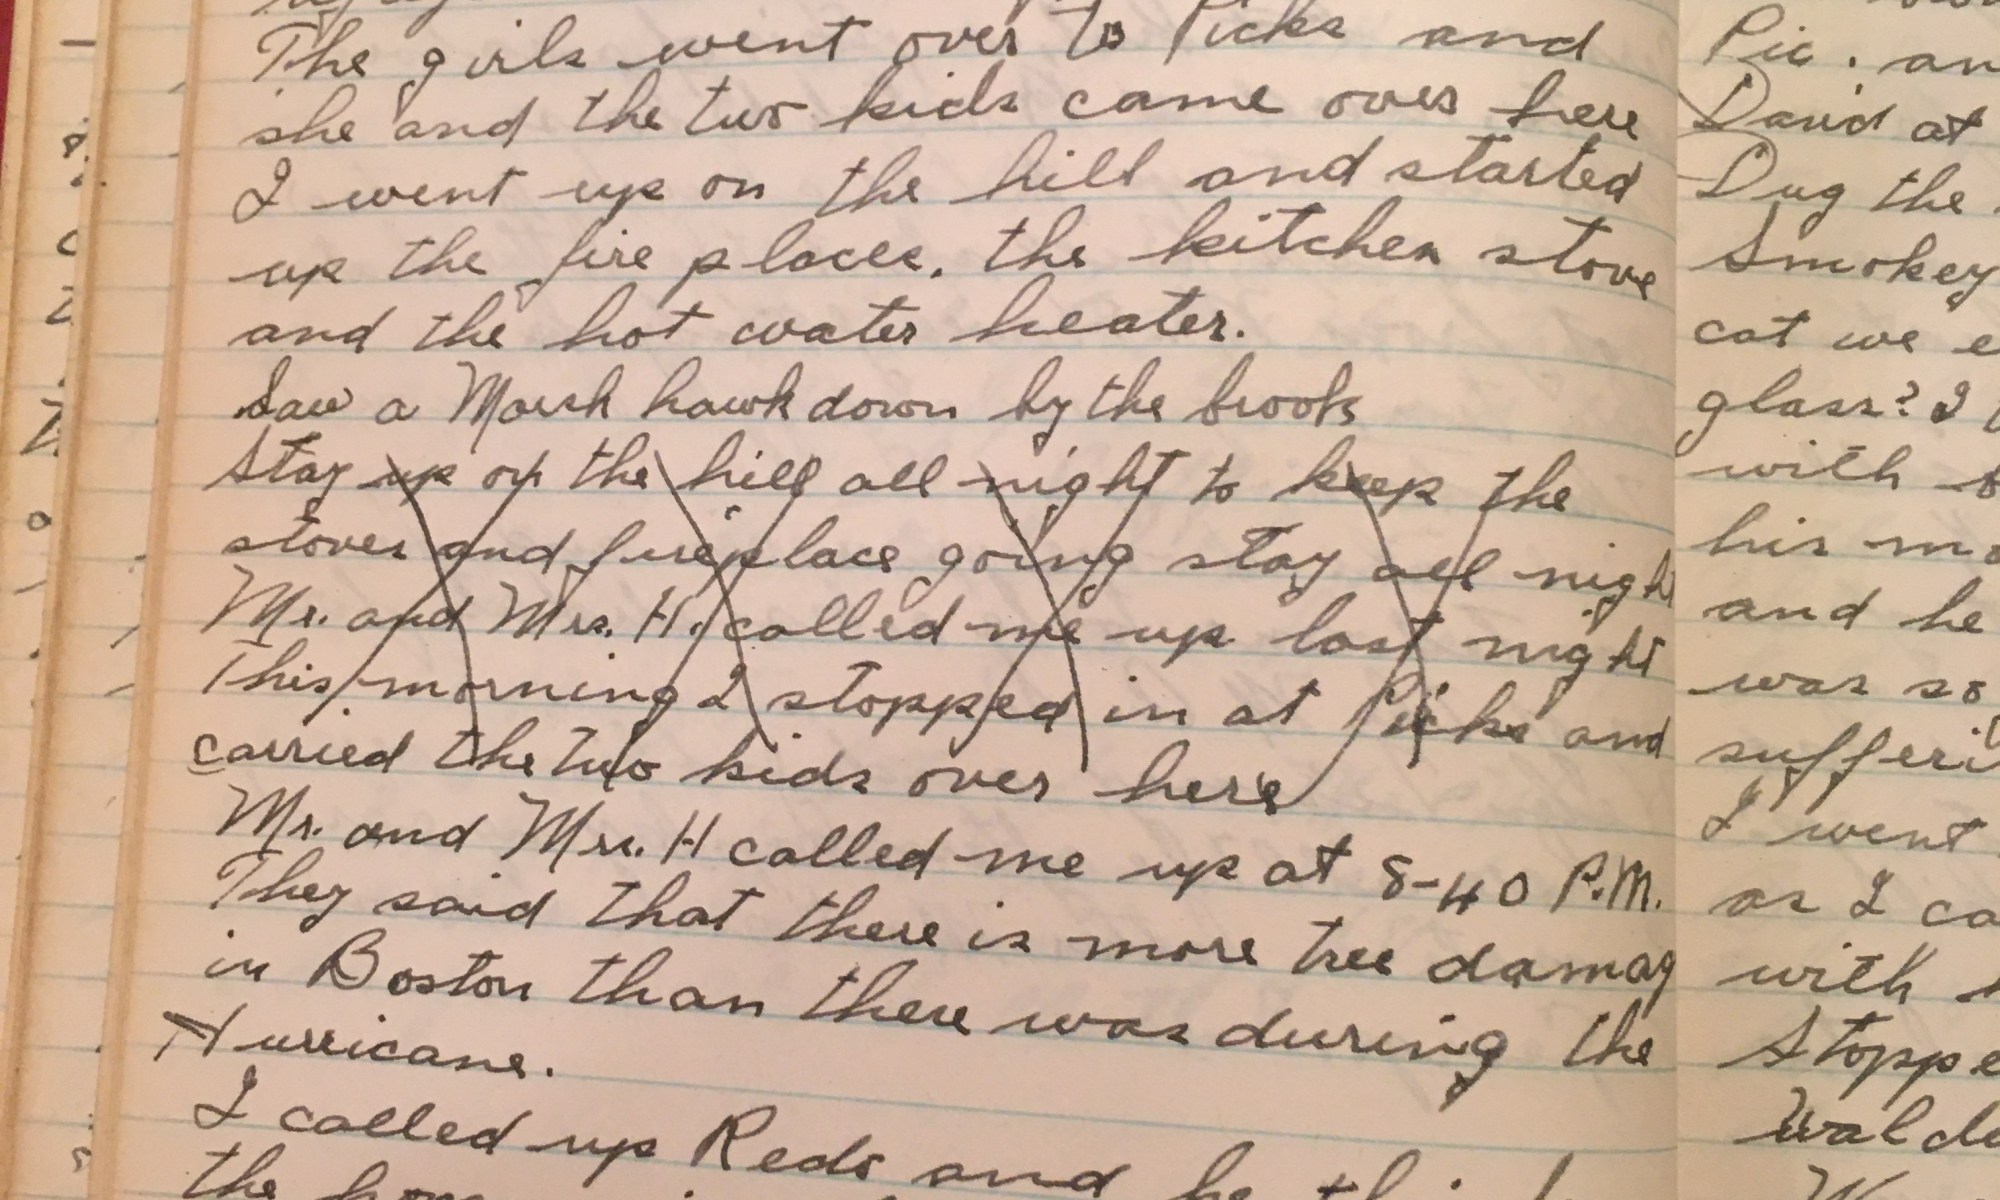 The girls went over to Picks and
she and the two kids came over here
I went up on the hill and started
up the fire places, the kitchen stove
and the hot water heater.
Saw a Marsh hawk down by the brook
Stay up on the hill all night to keep the
stoves and fireplace going stay all night
Mr. and Mrs. H. called me up last night
This morning I stopped in at Picks and
carried the two kids over here
Mr. and Mrs. H called me up at 8-40 P.M.
They said that there is more tree damag
in Boston than there was during the
Hurricane.
I called up Reds and he
the
Pic. an
David at
Dug the
Smokey
cat we e
glass? I
with
his mo
and he
was so
sufferi
I went
as I ca
with
Stoppe